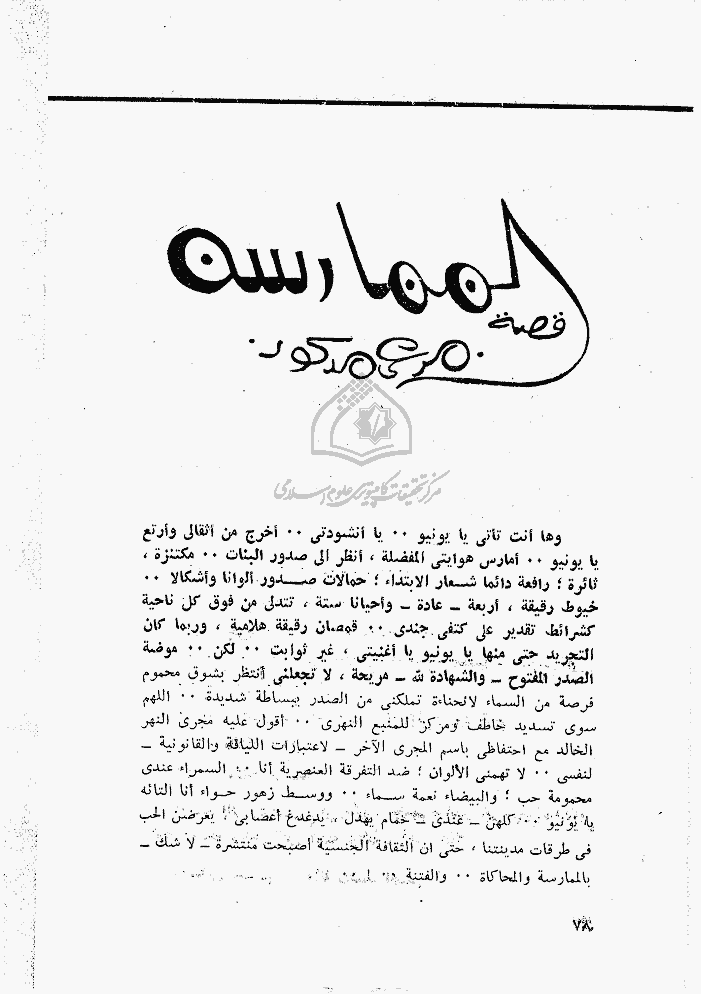 الممارسة
قصة
مرعى مدكور
مركز تحقيقات كامپيوتری علوم اسلامی
وها أنت تأتى يا يونيو ٠٠ يا أنشودتى ٠٠ أخرج من أثقالى وأرتع
يا يونيو ٠٠ أمارس هوايتى المفضلة ، أنظر الى صدور البنات ٠٠ مكتنزة ،
ثائرة ؛ رافعة دائما شعار الابتداء ؛ حمالات صدور ألوانا وأشكالا ٠٠
خيوط رقيقة ، أربعة ــ عادة ــ وأحيانا ستة ، تتدلى من فوق كل ناحية
كشرائط تقدير على كتفى جندى ٠٠ قمصان رقيقة هلامية ، وربما كان
التجريد حتى منها يا يونيو يا أغنيتى ، غير ثوابت ٠٠ لكن ٠٠ موضة
الصدر المفتوح ــ والشهادة لله ــ مريحة ، لا تجعلنى أنتظر بشوق محموم
فرصة من السماء لانحناءة تملكنى من الصدر ببساطة شديدة ٠٠ اللهم
سوى تسديد خاطف ومركز للمنبع النهرى ٠٠ أقول عليه مجرى النهر
الخالد مع احتفاظى باسم المجرى الآخر ــ لاعتبارات اللياقة والقانونية ــ
لنفسى ٠٠ لا تهمنى الألوان ؛ ضد التفرقة العنصرية أنا ٠٠ السمراء عندى
محمومة حب ؛ والبيضاء نعمة سماء ٠٠ ووسط زهور حواء أنا التائه
يا يونيو ٠٠ كلهن ــ عندى ــ حمام يهدل ، يدغدغ أعصابى يعرضن الحب
فى طرقات مدينتنا ، حتى ان الثقافة الجنسية أصبحت منتشرة ــ لا شك ــ
بالممارسة والمحاكاة ٠٠ والفتنة
٧٨